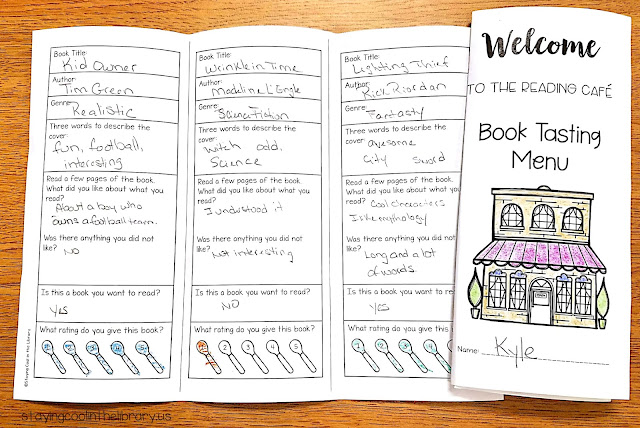 Book Title:
Kid Owner
Author:
Tim Green
Genre:
Realistic
Three words to describe the
cover:
fun, football,
interesting
Read a few pages of the book.
What did you like about what you
read?
About a boy who
owns a football team.
Was there anything you did not
like?
NO
Is this a book you want to read?
yes
What rating do you give this book?
1 2 3 4 5
Book Title:
Wrinkle in Time
Author:
Madeline L'Engle
Genre:
Science fiction
Three words to describe the
cover:
witch odd,
Science
Read a few pages of the book.
What did you like about what you
read?
I undstood it
Was there anything you did not
like?
Not interesting
Is this a book you want to read?
NO
What rating do you give this book?
1 2 3 4 5
Book Title:
Lighting Thief
Author:
Rick Riordan
Genre:
Fantasty
Three words to describe the
cover:
awesome
City sword
Read a few pages of the book.
What did you like about what you
read?
Cool characters
Is the mythology
Was there anything you did not
like?
Long and a lot
of words.
Is this a book you want to
yes
What rating do you give this
1 2 3 4
Welcome
TO THE READING CAFÉ
Book Tasting
Menu
Name:
Kyle
©Staying Cool in the Library
stayingcoolinthelibrary.us